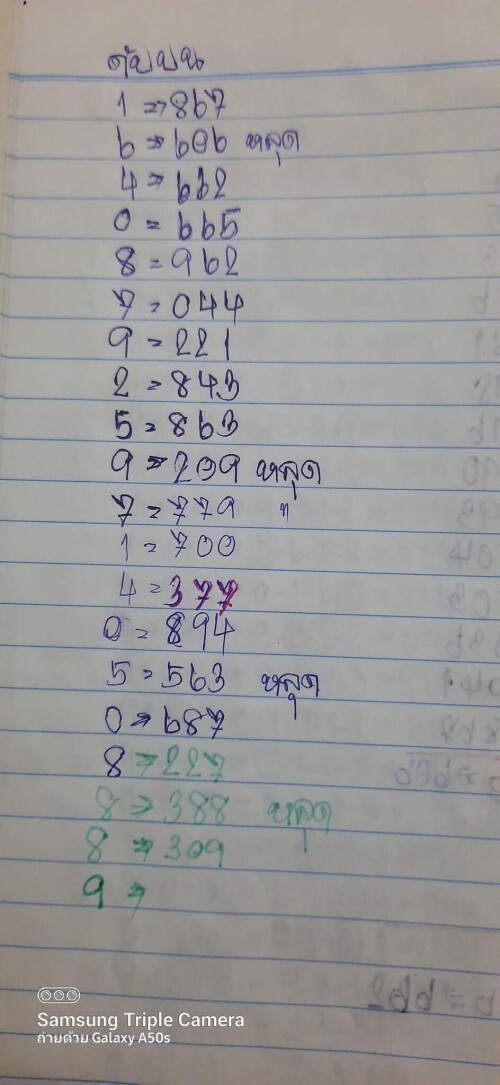 ดับบน
1 => 867
6 => 606 หลุด
4 => 662
0 = 665
8 = 962
7 = 044
9 = 221
2 = 843
5 = 863
9 => 209 หลุด
7 = 779 "
1 = 700
4 = 377
0 = 894
5 = 563 หลุด
0 => 687
8 => 227
8 => 388 หลุด
8 => 309
9 =>
Samsung Triple Camera
ถ่ายด้วย Galaxy A50s